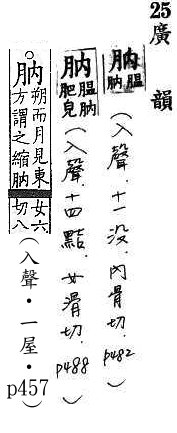 25廣韻
肭膃肭(入聲.十一没.內骨切.p482)
肭膃肭肥皃(入聲.十四黠.女滑切.p488)
○肭朔而月見東方謂之縮肭女六切八(入聲・一屋・p457)